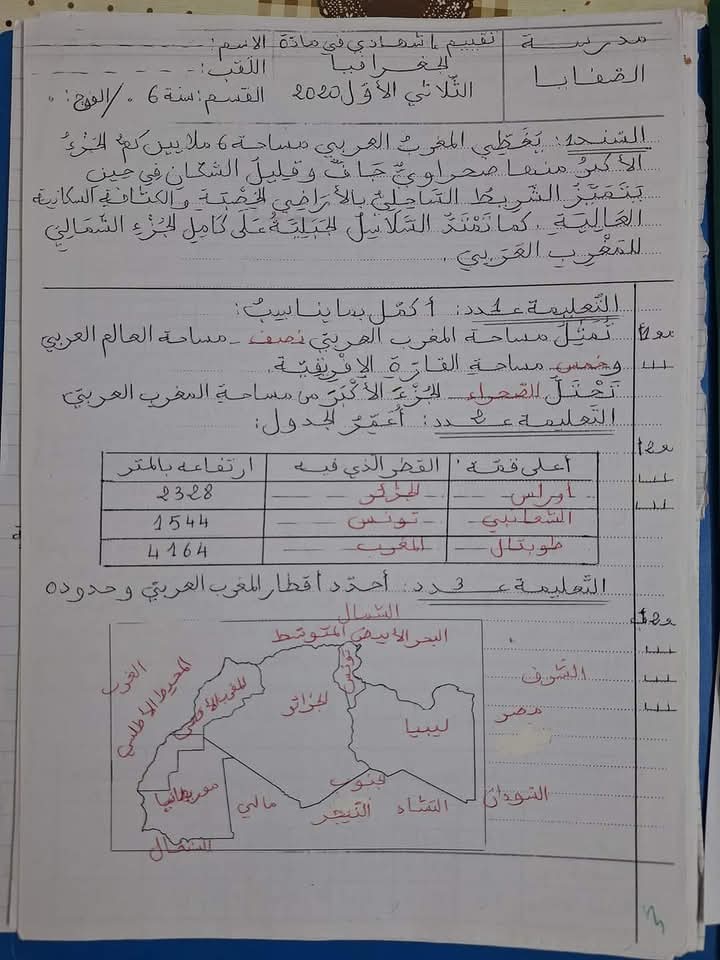 مدرسة
الصفايا
تقييم إشهادي في مادة
الجغرافيا
الثّلاثي الأوّل 2020
الاسم:
اللقب:
القسم: سنة 6 / الفوج:
السّند 1: يُغَطِّي المغربُ العربي مساحة 6 ملايين كم² الجزءُ
الأكبرُ منها صحراويٌّ جافٌّ وقليل السّكّان في حين
يَتَمَيَّزُ الشّريطُ السّاحليّ بالأراضي الخصْبَةِ والكثافة السكانية
العالية. كما تَمْتَدُّ السّلاسِلُ الجبليّةُ على كامل الجُزْءِ الشّمالي
للمغرب العربي.
التّعليمة ع1دد: أكمل بما يناسبُ:
تُمثّل مساحة المغرب العربيّ نصف مساحة العالم العربي
وخمس مساحة القارّة الإفريقيّة.
تحْتلّ الصّحراء الجُزءَ الأكْبَرَ من مساحة المغرب العربيّ
التّعليمة ع2دد: أعمّر الجدول:
أعلى قمّة القطر الذي فيه ارتفاعه بالمتر
أوراس الجزائر 2328
الشعانبي تونس 1544
طوبقال المغرب 4164
التّعليمة ع3دد: أحدّد أقطار المغرب العربيّ وحدوده
الشمال
البحر الأبيض المتوسّط
الغرب
المحيط الأطلسي
المغرب الأقصى
الجزائر
تونس
ليبيا
الشرق
مصر
موريطانيا
مالي
جنوب
النيجر
التشاد
السودان
السنغال